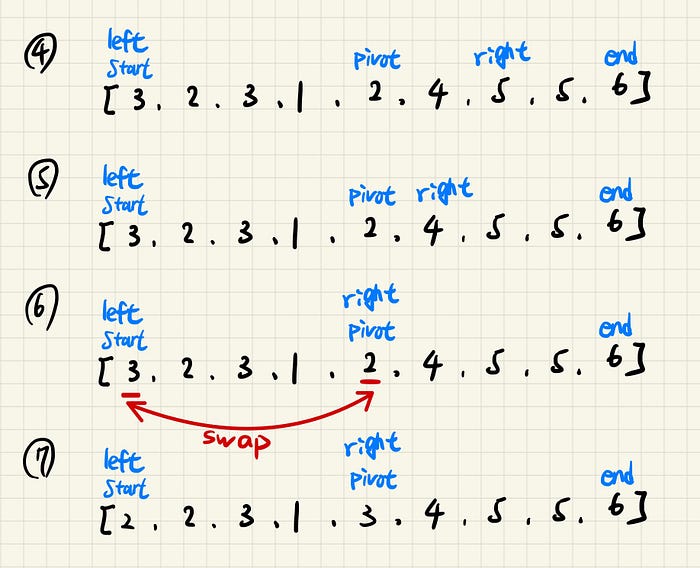 ④
left
Start pivot right end
[ 3. 2. 3. 1. 2. 4. 5. 5. 6 ]
⑤
left
Start pivot right end
[ 3. 2. 3. 1. 2. 4. 5. 5. 6 ]
⑥
left right
Start pivot end
[ 3. 2. 3. 1. 2. 4. 5. 5. 6 ]
swap
⑦
left right
Start pivot end
[ 2. 2. 3. 1. 3. 4. 5. 5. 6 ]